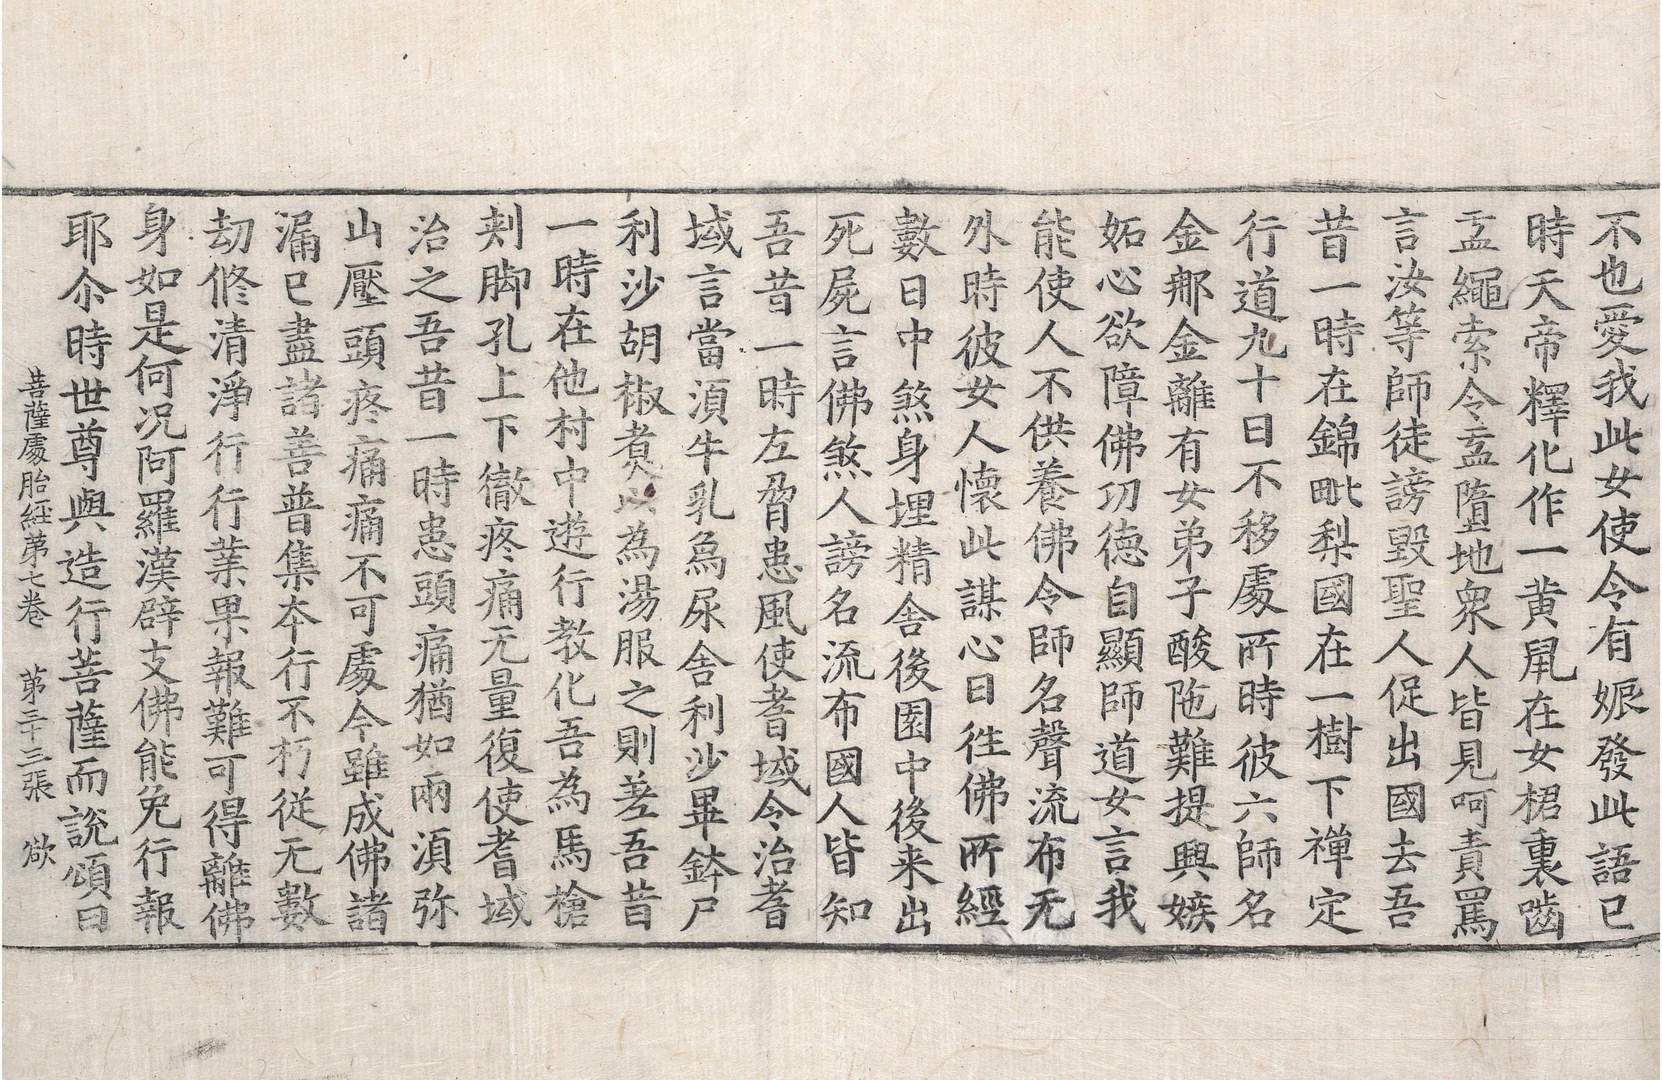 不也愛我此女使令有娠發此語已
時天帝釋化作一黃鼠在女裙裏嚙
盂繩索令盂墮地衆人皆見呵責罵
言汝等師徒謗毀聖人促出國去吾
昔一時在錦毗梨國在一樹下禪定
行道九十日不移處所時彼六師名
金那金離有女弟子酸陁難提興嫉
妬心欲障佛㓛德自顯師道女言我
能使人不供養佛令師名聲流布无
外時彼女人懷此謀心日往佛所經
數日中煞身埋精舍後園中後来出
死屍言佛煞人謗名流布國人皆知
吾昔一時左脅患風使耆域令治耆
域言當須牛乳爲尿舍利沙畢鉢尸
利沙胡椒煮以為湯服之則差吾昔
一時在他村中遊行教化吾為馬槍
刾脚孔上下徹疼痛无量復使耆域
治之吾昔一時患頭痛猶如兩湏弥
山壓頭疼痛痛不可處今雖成佛諸
漏已盡諸善普集本行不朽從无數
劫修清淨行行業果報難可得離佛
身如是何况阿羅漢辟支佛能免行報
耶尒時世尊與造行菩薩而說頌曰
菩薩處胎經苐七卷　苐三十三張　欲